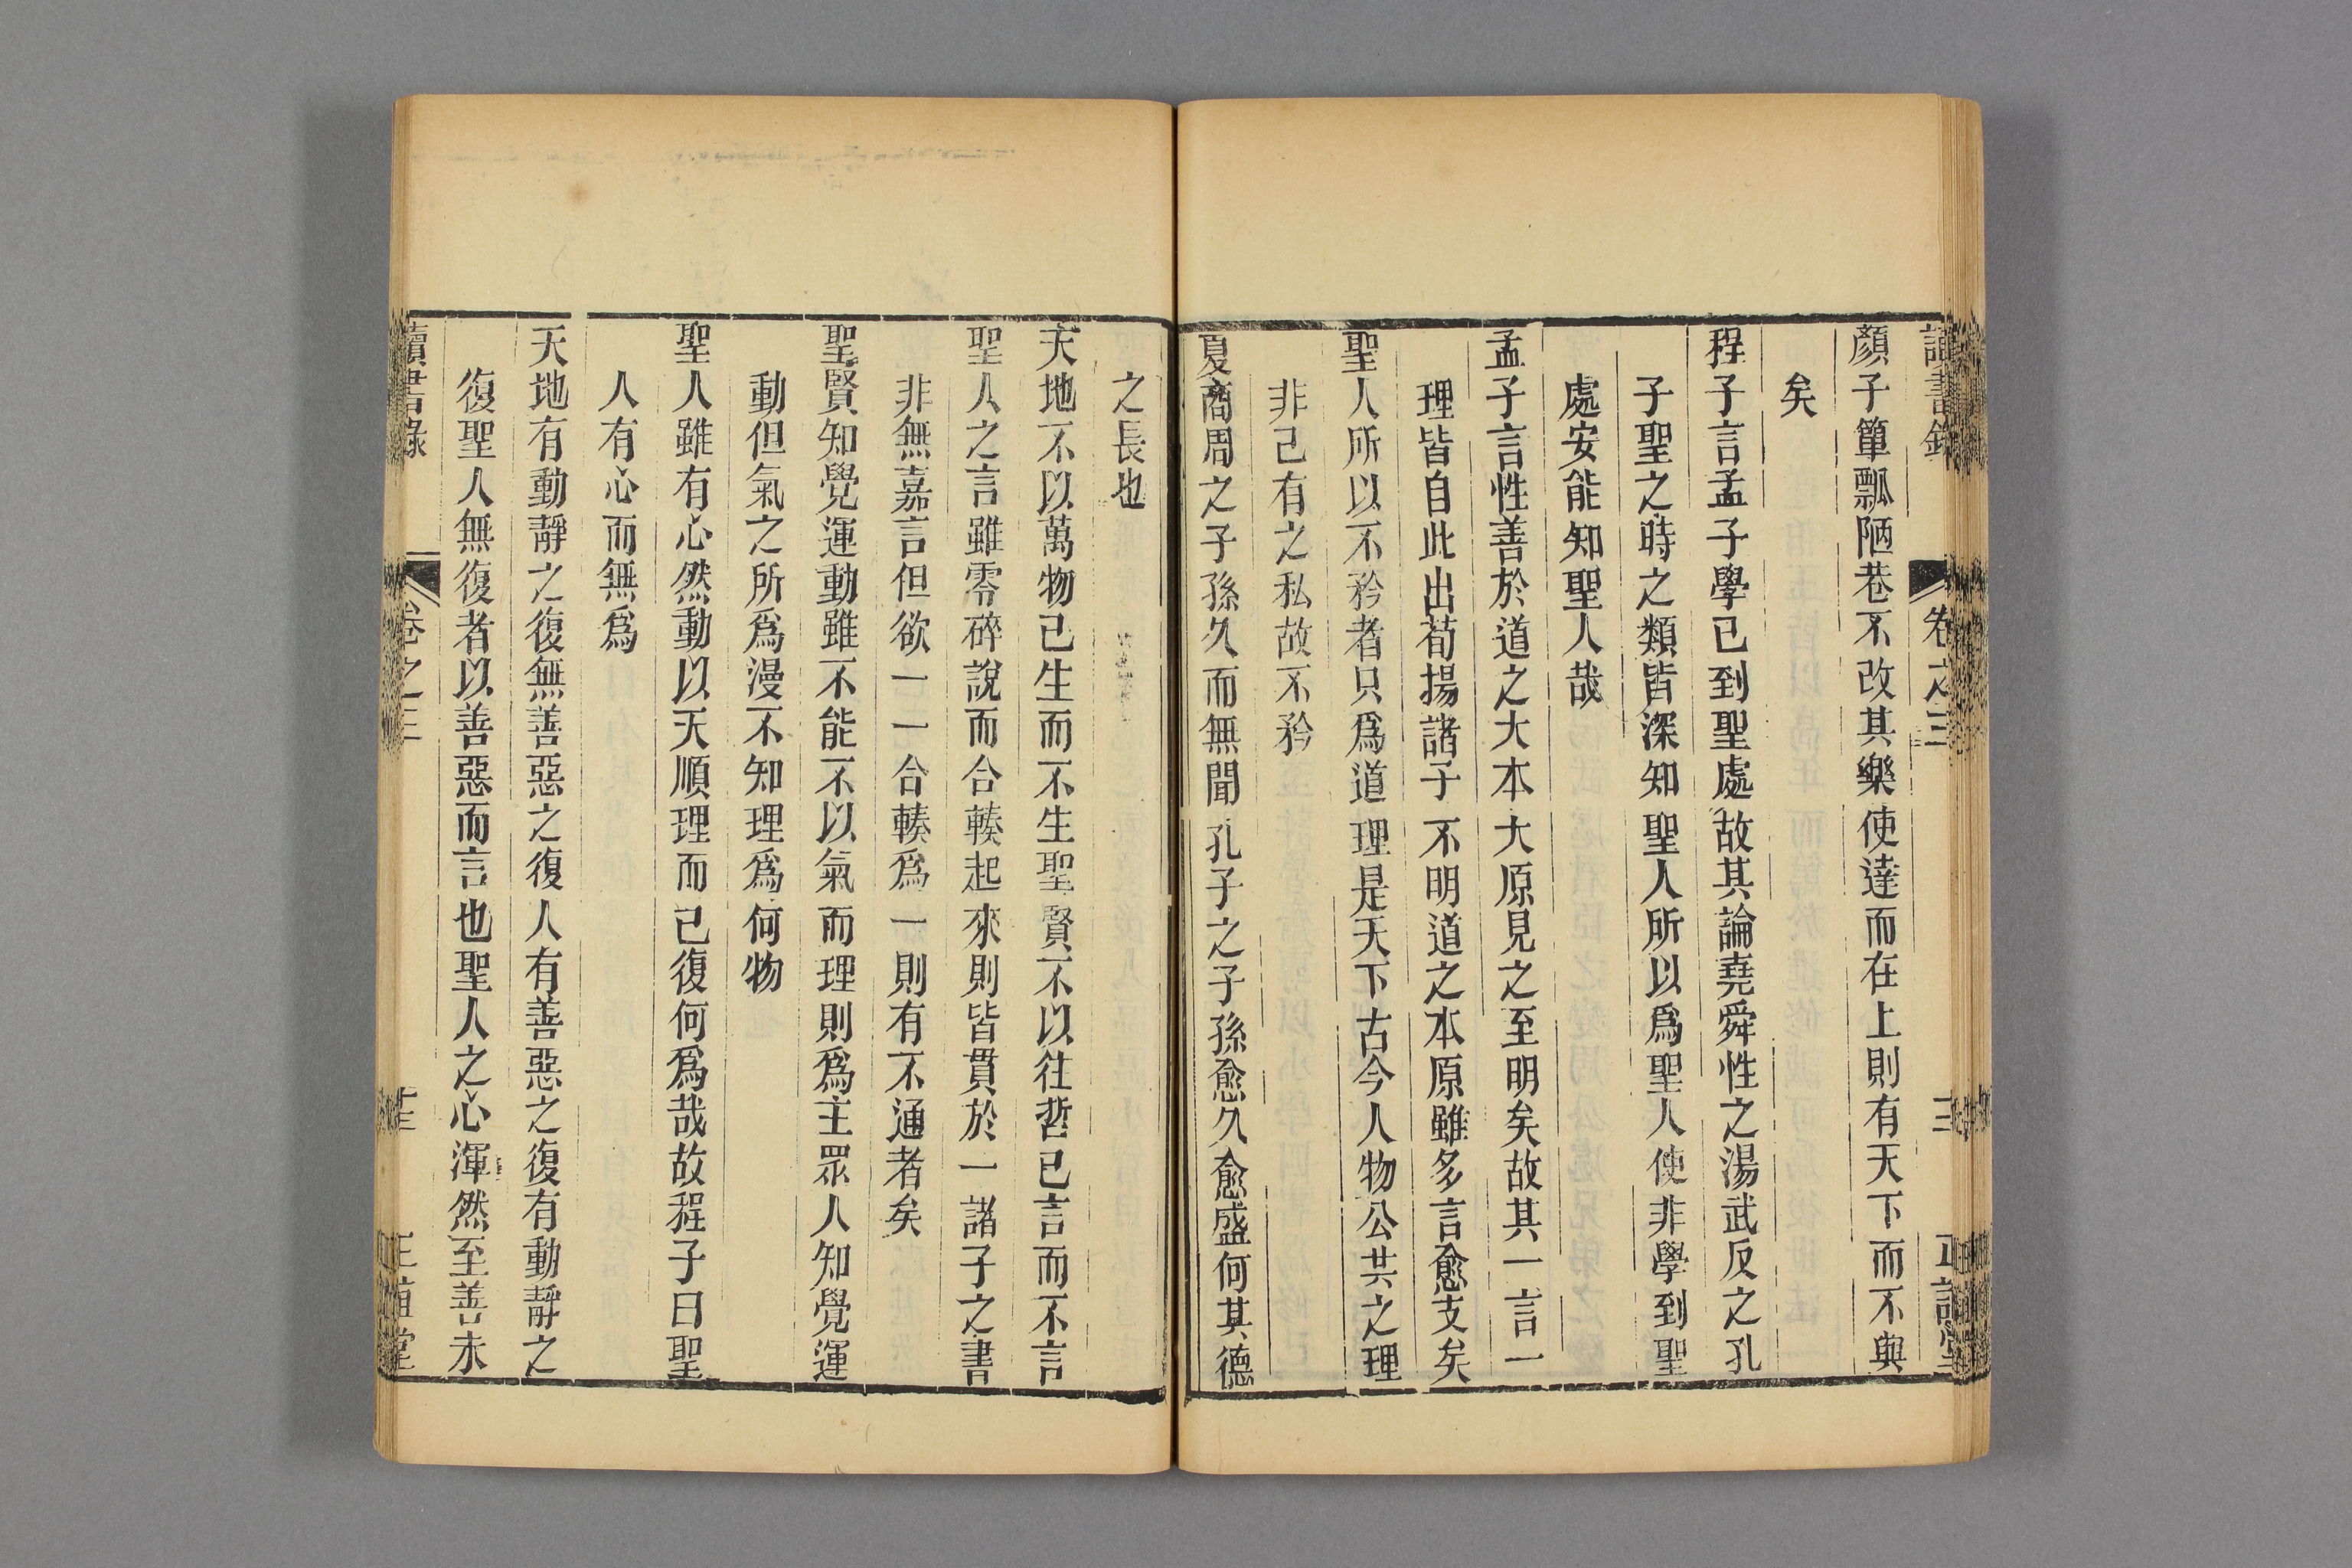 讀書錄 卷之三 三 正誼堂
顏子簞瓢陋巷不改其樂使達而在上則有天下而不與
矣
程子言孟子學已到聖處故其論堯舜性之湯武反之孔
子聖之時之類皆深知聖人所以爲聖人使非學到聖
處安能知聖人哉
孟子言性善於道之大本大原見之至明矣故其一言一
理皆自此出荀揚諸子不明道之本原雖多言愈支矣
聖人所以不矜者只爲道理是天下古今人物公共之理
非己有之私故不矜
夏商周之子孫久而無聞孔子之子孫愈久愈盛何其德
之長也
天地不以萬物已生而不生聖賢不以往哲已言而不言
聖人之言雖零碎說而合輳起來則皆貫於一諸子之書
非無嘉言但欲一一合輳爲一則有不通者矣
聖賢知覺運動雖不能不以氣而理則爲主眾人知覺運
動但氣之所爲漫不知理爲何物
聖人雖有心然動以天順理而已復何爲哉故程子曰聖
人有心而無爲
天地有動靜之復無善惡之復人有善惡之復有動靜之
復聖人無復者以善惡而言也聖人之心渾然至善未
讀書錄 卷之三 正誼堂